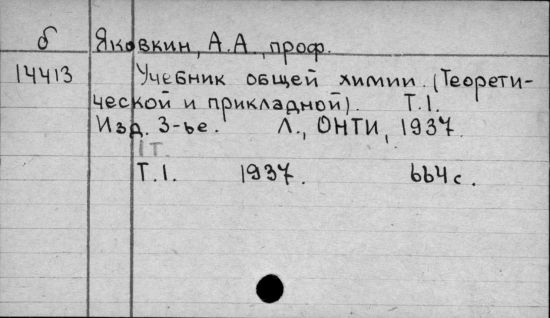 б Яковкин, А.А., проф.
14413 Учебник общей химии. (Теорети-
ческой и прикладной). Т.I.
Изд. 3-ье. Л., ОНТИ, 1937.
1т.
Т.I. 1937. 664с.